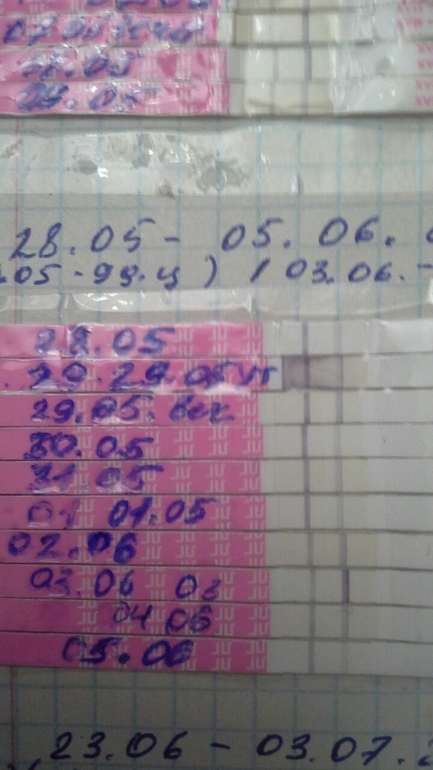 28.05
29.05
28.05 - 05.06.
.05 - 99.ц ) ( 03.06. -
28.05
29. 29.05 ут
29.05. веч
30.05
31.05
01 01.05
02.06
03.06 03
04 06
05.06
23.06 - 03.07.2